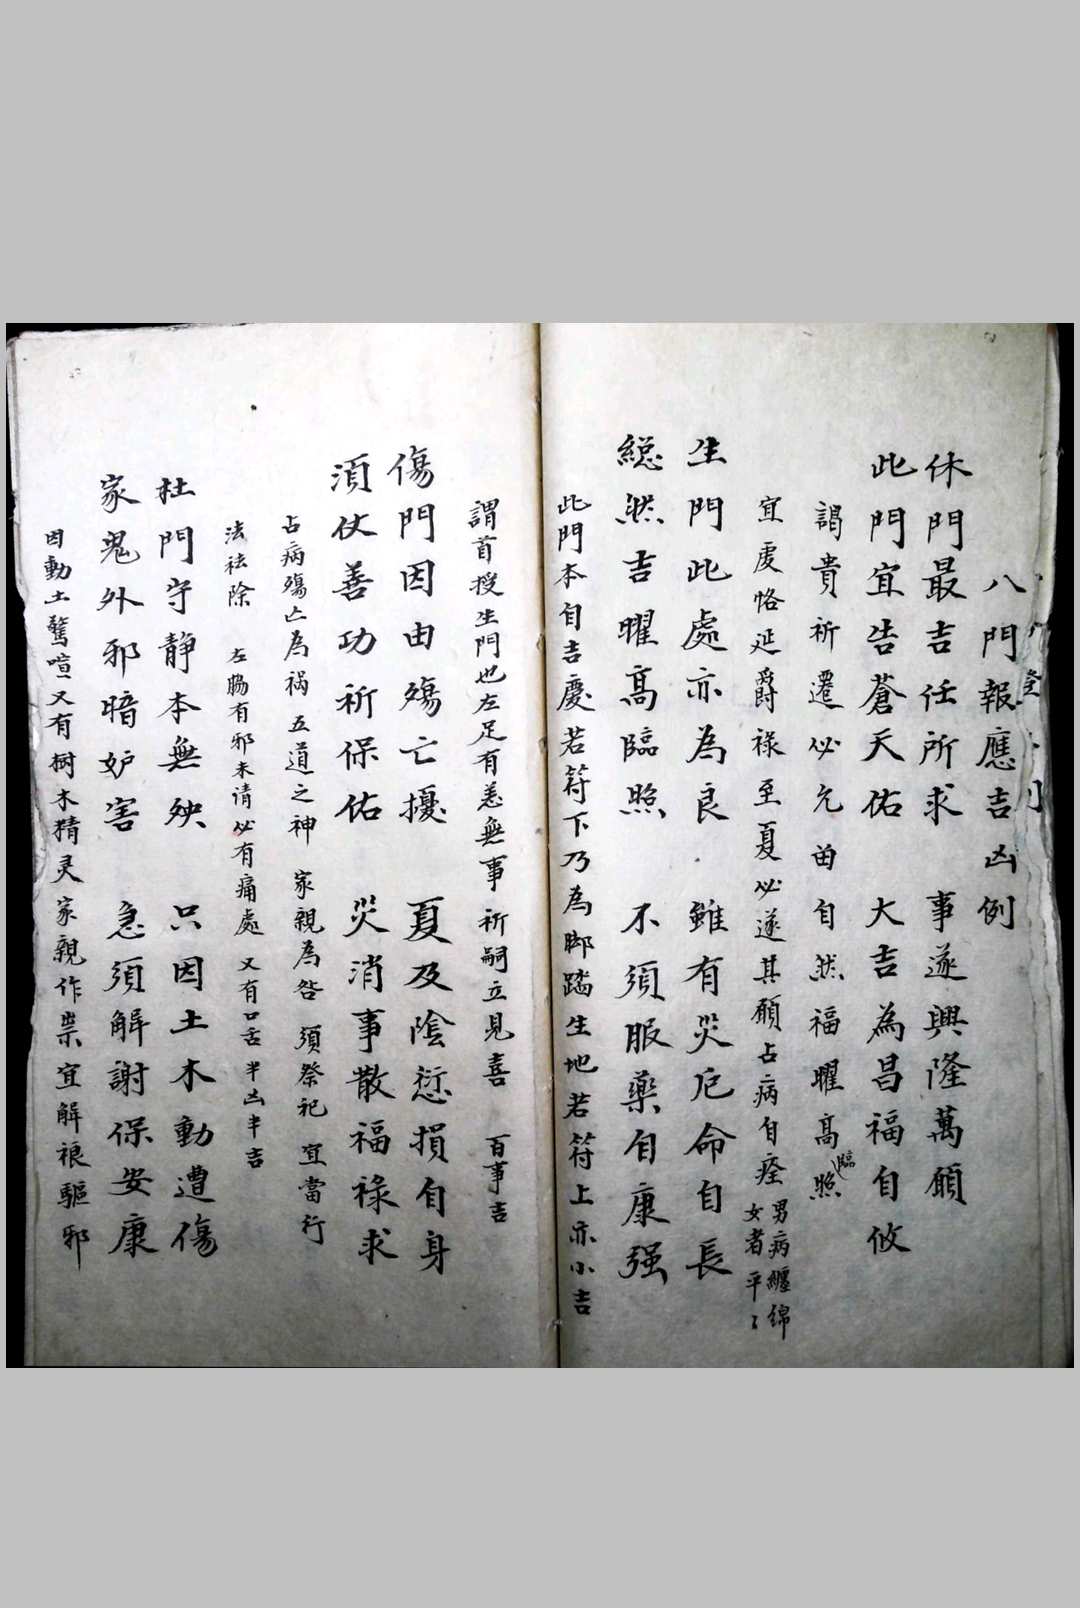 八門報應吉凶例
休門最吉任所求　事遂興隆萬願
此門宜告蒼天佑　大吉為昌福自攸
謁貴祈遷必允　自然福曜高臨照
宜虔恪延爵祿至夏必遂其願占病自痊男病纏綿
女者平〻
生門此處亦為良　雖有災厄命自長
縂然吉曜高臨照　不須服藥自康强
此門本自吉慶若符下乃為脚踏生地若符上亦小吉
謂首授生門也左足有恙無事　祈嗣立見喜　百事吉
傷門因由殤亡擾　夏及陰愆損自身
須仗善功祈保佑　災消事散福祿求
占病殤亡為祸　五道之神　家親為咎　須祭祀　宜當行
法祛除　左腸有邪未请必有痛處　又有口舌　半凶半吉
杜門守靜本無殃　只因土木動遭傷
家鬼外邪暗妒害　急須解謝保安康
因動土驚喧又有樹木精灵家親作祟宜解禳驅邪